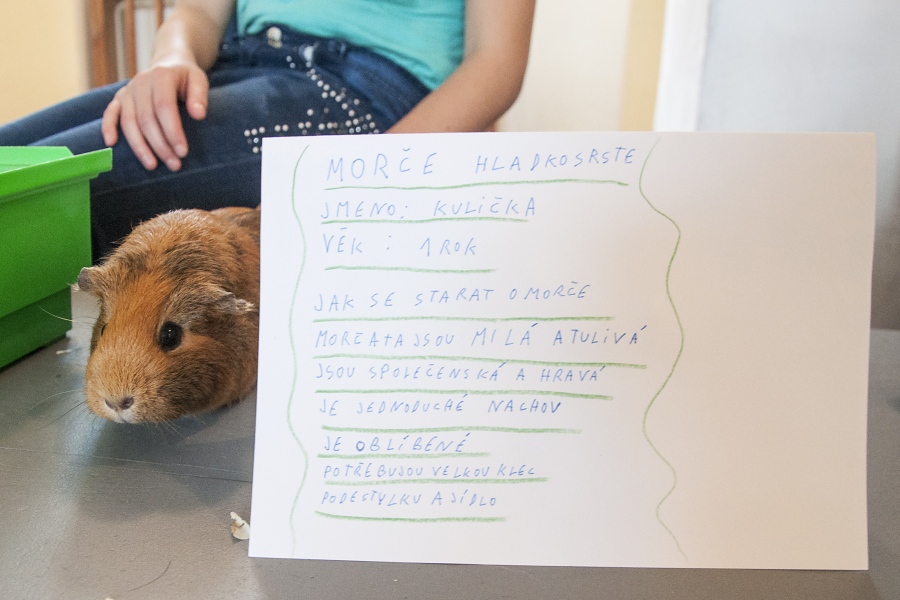 MORČE HLADKOSRSTE
JMENO: KULIČKA
VĚK : 1 ROK
JAK SE STARAT O MORČE
MORČATA JSOU MILÁ A TULIVÁ
JSOU SPOLEČENSKÁ A HRAVÁ
JE JEDNODUCHÉ NACHOV
JE OBLÍBENÉ
POTŘEBUJOU VELKOU KLEC
PODESTYLKU A JÍDLO